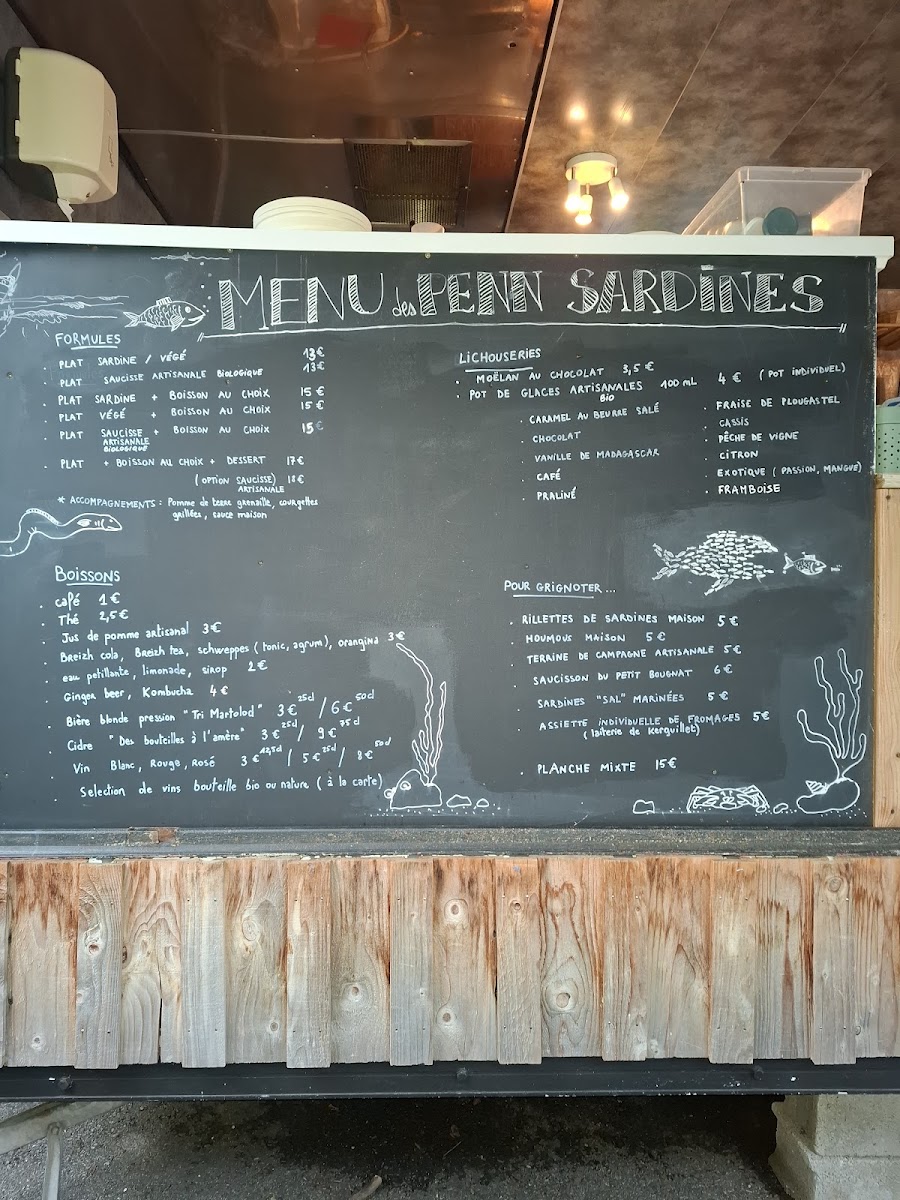 MENU des PENN SARDINES
FORMULES
. PLAT SARDINE / VÉGÉ 13€
. PLAT SAUCISSE ARTISANALE BIOLOGIQUE 13€
. PLAT SARDINE + BOISSON AU CHOIX 15€
. PLAT VÉGÉ + BOISSON AU CHOIX 15€
. PLAT SAUCISSE + BOISSON AU CHOIX 15€
ARTISANALE
BIOLOGIQUE
. PLAT + BOISSON AU CHOIX + DESSERT 17€
(OPTION SAUCISSE) 18€
ARTISANALE
* ACCOMPAGNEMENTS : Pomme de terre grenaille, courgettes
grillées, sauce maison
BOISSONS
. café 1€
. Thé 2,5€
. Jus de pomme artisanal 3€
. Breizh cola, Breizh tea, schweppes (tonic, agrum), orangina 3€
. eau petillante, limonade, sirop 2€
. Ginger beer, Kombucha 4€
. Bière blonde pression "Tri Martolod" 3€ 25cl / 6€ 50cl
. Cidre "Des bouteilles à l'amère" 3€ 25cl / 9€ 75cl
. Vin Blanc, Rouge, Rosé 3€ 12,5cl / 5€ 25cl / 8€ 50cl
. Selection de vins bouteille bio ou nature (à la carte)
LICHOUSERIES
. MOËLAN AU CHOCOLAT 3,5 €
. POT DE GLACES ARTISANALES 100 mL 4 € (POT INDIVIDUEL)
BIO
. CARAMEL AU BEURRE SALÉ
. CHOCOLAT
. VANILLE DE MADAGASCAR
. CAFÉ
. PRALINÉ
. FRAISE DE PLOUGASTEL
. CASSIS
. PÊCHE DE VIGNE
. CITRON
. EXOTIQUE (PASSION, MANGUE)
. FRAMBOISE
POUR GRIGNOTER...
. RILLETTES DE SARDINES MAISON 5€
. HOUMOUS MAISON 5€
. TERRINE DE CAMPAGNE ARTISANALE 5€
. SAUCISSON DU PETIT BOUGNAT 6€
. SARDINES "SAL" MARINÉES 5€
. ASSIETTE INDIVIDUELLE DE FROMAGES 5€
(laiterie de Kerguillet)
. PLANCHE MIXTE 15€